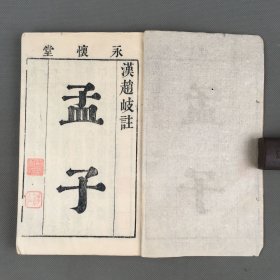 永懷堂
漢趙岐註
孟子